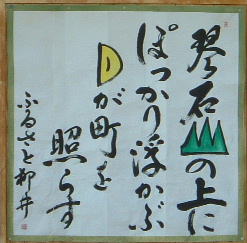 琴石山の上に
ぽっかり浮かぶ
月が町を
照らす
ふるさと柳井